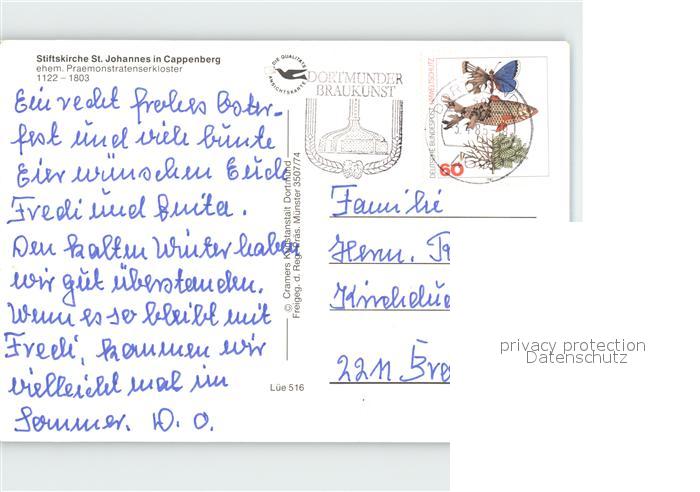 Stiftskirche St. Johannes in Cappenberg
ehem. Praemonstratenserkloster
1122 – 1803
DIE QUALITÄTS ANSICHTSKARTE
DORTMUNDER
BRAUKUNST
DEUTSCHE BUNDESPOST UMWELTSCHUTZ
60
Ein recht frohes Oster-
fest und viele bunte
Eier wünschen Euch
Fredi und Anita.
Den kalten Winter haben
wir gut überstanden.
Wenn es so bleibt mit
Fredi, kommen wir
vielleicht mal im
Sommer. D. O.
© Cramers Kunstanstalt Dortmund
Freigeg. d. Reg. Präs. Münster 3507/74
Lüe 516
Familie
Herm.
2211
privacy protection
Datenschutz